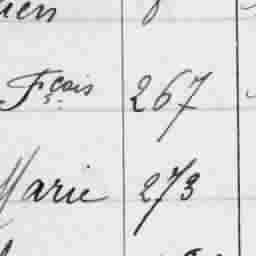 Fçois 267
Marie 273